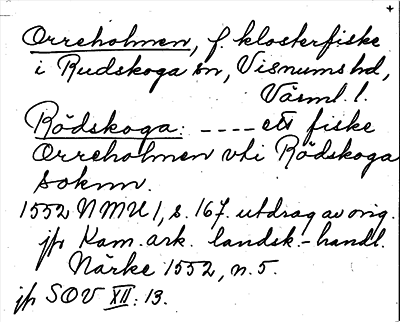 Orreholmen, f. klosterfiske
i Rudskoga sn, Visnums hd,
Värml. l.
Rödskoga: ---- ett fiske
Orreholmen vti Rödskoga
soknn.
1552 NMU 1, s. 167. utdrag av orig.
jfr Kam. ark. landsk.-handl.
Närke 1552, n. 5.
jfr SOV XII: 13.